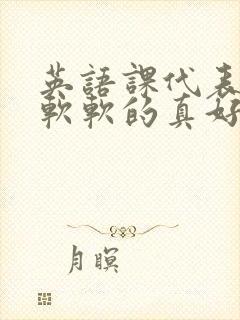 英語課代表
軟軟的真好
月瞑